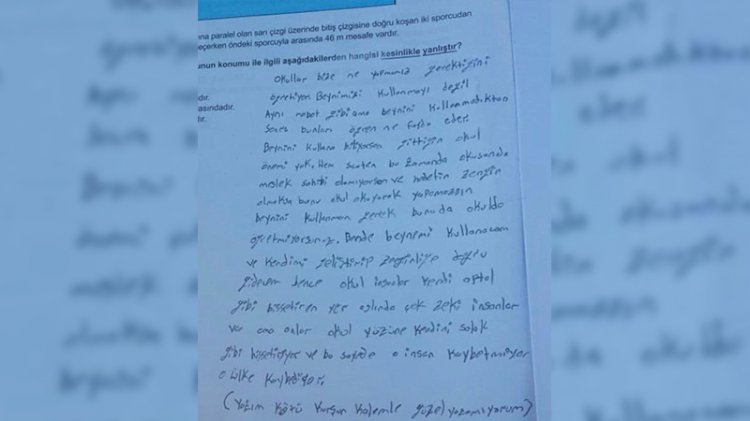 na paralel olan sarı çizgi üzerinde bitiş çizgisine doğru koşan iki sporcudan
eçerken öndeki sporcuyla arasında 46 m mesafe vardır.
nun konumu ile ilgili aşağıdakilerden hangisi kesinlikle yanlıştır?
dır.
asındadır.
ır.
Okullar bize ne yapmamız gerektiğini
öğretiyor Beynimizi kullanmayı değil
Aynı robot gibi ama beynini kullanmadıktan
Sonra bunları öğren ne fayda eder.
Beynini kullana bitiyorsan gittiğin okul
önemi yok. Hem zaten bu zamanda okusanda
meslek sahibi olamıyorsan ve hedefin zengin
olmaksa bunu okul okuyarak yapamazsın
beynini kullanman gerek bunuda okulda
öğretmiyorsunuz. Bende beynemi kullanacam
ve kendimi geliştirip zenginliğe doğru
gidecem bence okul insanlar kendi aptal
gibi hissettiren yer aslında çok zeki insanlar
var ama onlar okul yüzüne kendini salak
gibi hissediyor ve bu sayede o insan kaybetmiyor
o ülke kaybediyor.
(Yazım kötü kurşun kalemle güzel yazamıyorum)